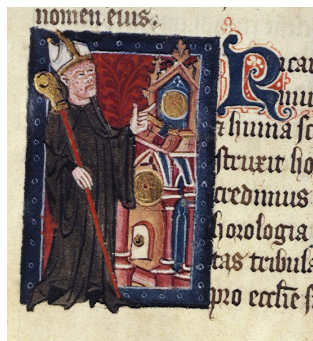 nomen eius.
Ricar
struxit ho
credimus
horologia
tas tribula
pro eccle